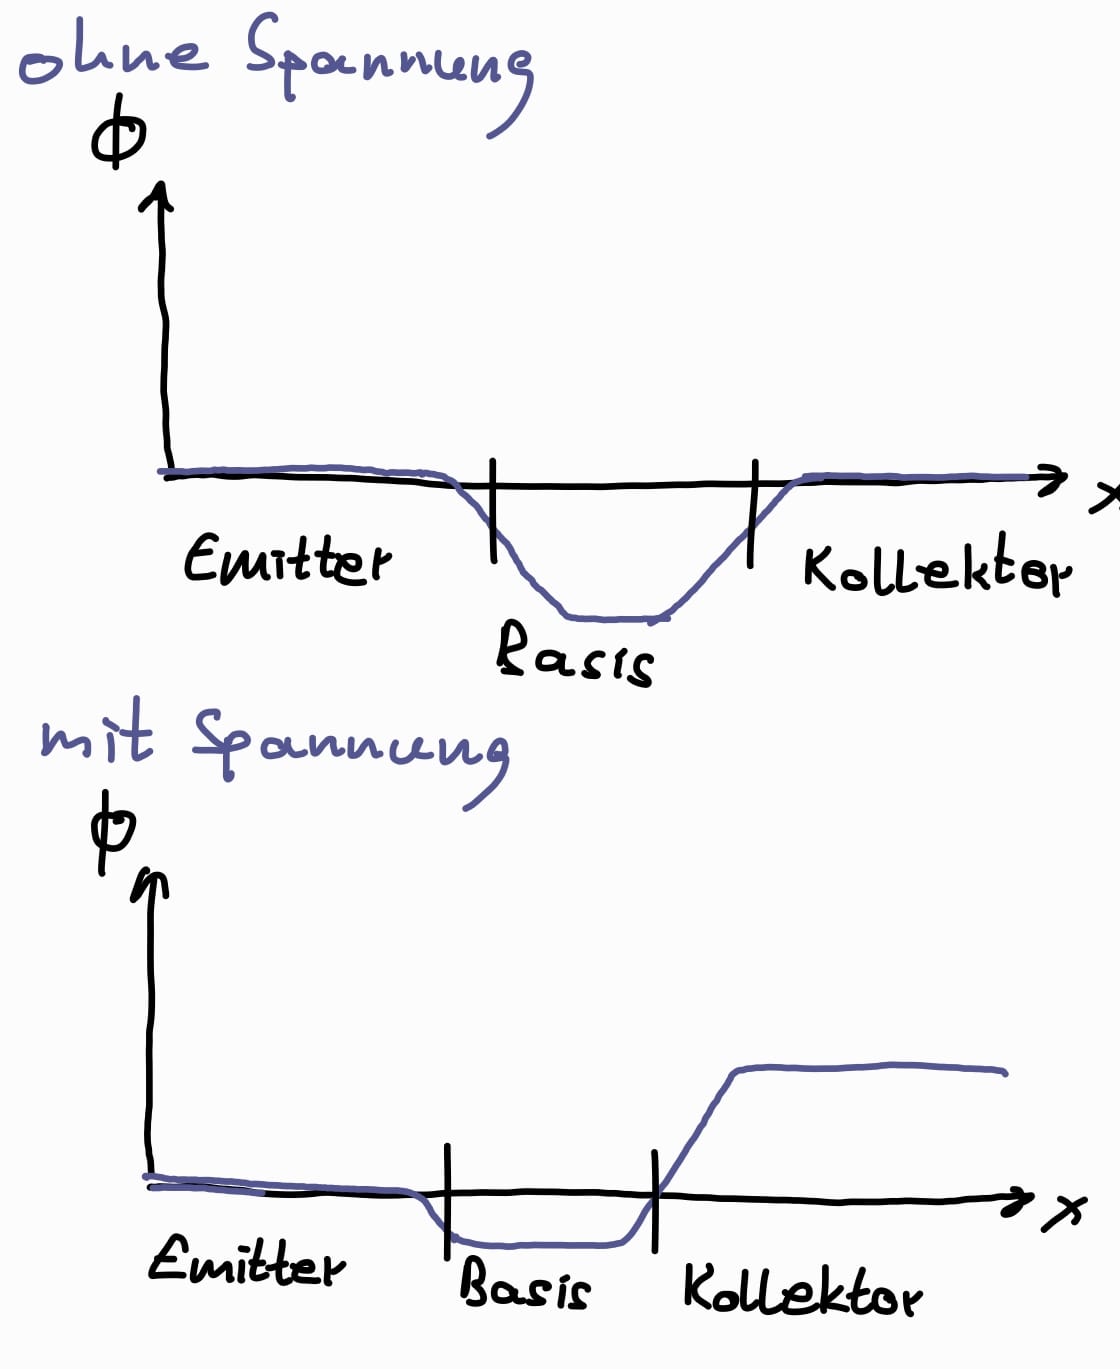 ohne Spannung
ϕ
x
Emitter
Kollektor
Basis
mit Spannung
ϕ
x
Emitter
Basis
Kollektor